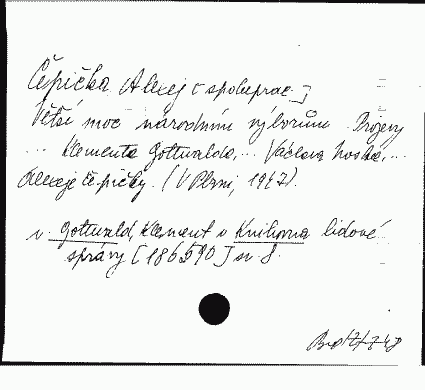 Čepička Alexej [spoluprac.]
Větší moc národním výborům. Projevy
... Klementa Gottwalda, ... Václava Noska, ...
Alexeje Čepičky. (V Plzni, 1947).
v. Gottwald, Klement v Knihovna lidové
správy [186590] sv 8.